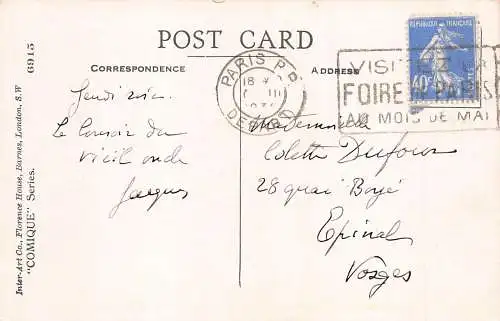 POST CARD
CORRESPONDENCE
ADDRESS
Inter-Art Co., Florence House, Barnes, London, S.W
"COMIQUE" Series.
6915
PARIS P.
18
DEPART
VISITEZ LA
FOIRE DE PARIS
AU MOIS DE MAI
REPUBLIQUE FRANÇAISE
40c
Jeudi soir
Le bonsoir du
vieil oncle
Jacques
Mademoiselle
Colette Dufour
28 quai Boyé
Epinal
Vosges